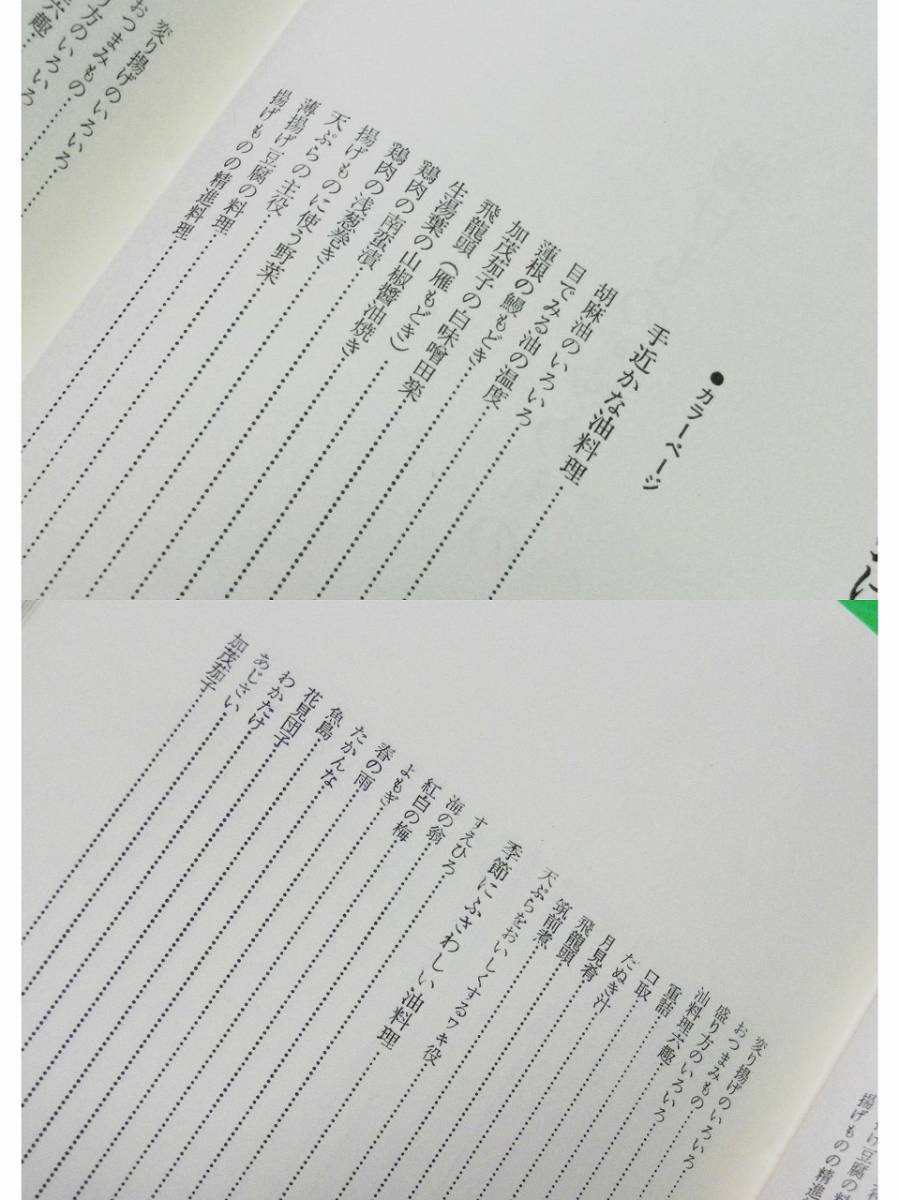 ●カラーページ
手近かな油料理
胡麻油のいろいろ
目でみる油の温度
蓮根のいろいろ
加茂茄子の鰻もどき
飛龍頭の白味噌田楽
生湯葉(雁もどき)
鶏肉の山椒醬油焼き
鶏肉の南蛮漬
揚げものの浅葱巻き
天ぷらに使う野菜
薄揚げの主役
揚げ豆腐の料理
揚げものの精進料理
変り揚げのいろいろ
おつまみもの
り方のいろいろ
六趣
変り揚げのいろいろ
おつまみもの
盛り方のいろいろ
油料理六趣
重詰
口取
たぬき汁
月見肴
飛龍頭
筑前煮
天ぷらをおいしくするワキ役
季節にふさわしい油料理
すえひろ
海の翁
紅白の梅
よもぎ
春の雨
たかんな
魚島
花見団子
わかたけ
あじさい
加茂茄子
け豆腐の
揚げものの精進